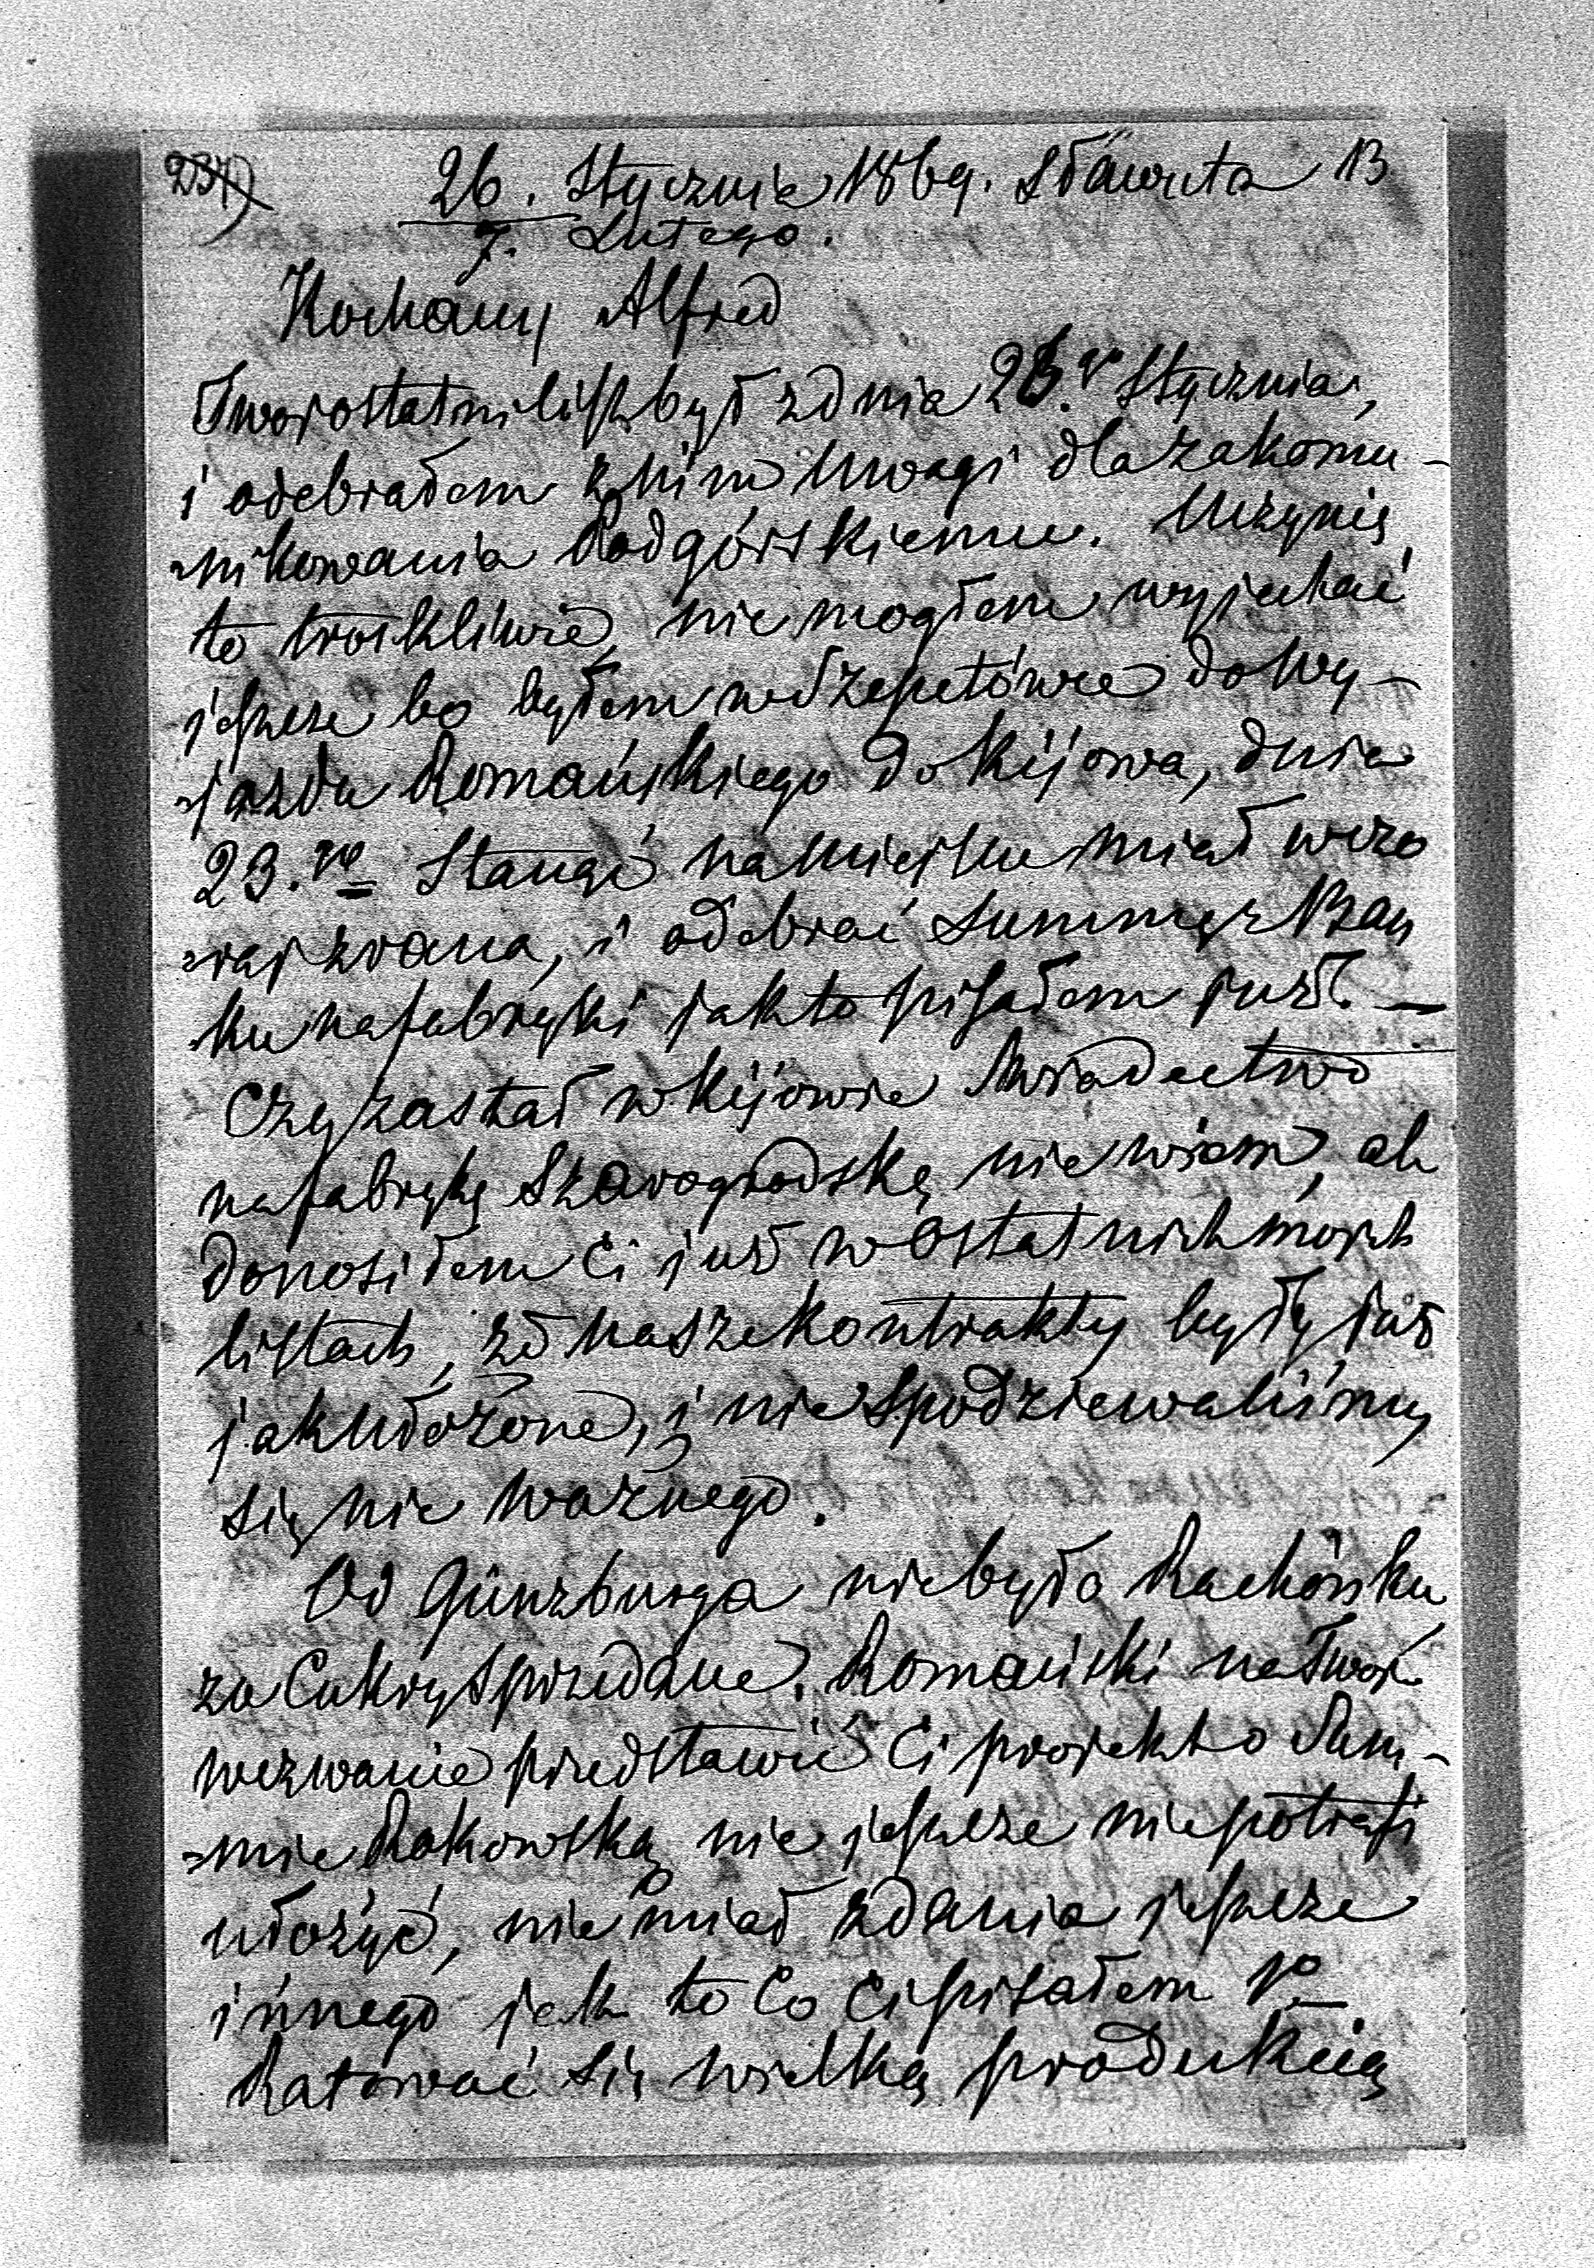 237) 26. Stycznia 1869. Sławuta 13
7. Lutego.
Kochany Alfred
Twoj ostatni list był z dnia 23.go Stycznia,
i odebrałem z nim Uwagi dla zakomu-
=nikowania Podgórskiemu. Uczynię
to troskliwie, nie mogłem wyjechać
jeszcze bo byłem w Szepetówce do Wy-
=jazdu Romańskiego do Kijowa, dnia
23.go Stanąć na miejscu miał wczo
=raj zrana, i odebrać Summę z Ban
ku na fabryki jak to pisałem już. —
Czy zastał w Kijowie Świadectwo
na fabrykę Szarogrodską nie wiem, ale
donosiłem Ci już w ostatnich moich
listach, że nasze kontrakty były już
jak ułożone, i nie spodziewaliśmy
się nic ważnego.
Od Günzburga nie było Rachunku
za Cukry sprzedane. Romański na Twoje
wezwanie przedstawić Ci projekt o Sum-
=mie Rakowską nic jeszcze nie potrafi
ułożyć, nie miał zdania jeszcze
innego jak to Co Ci pisałem 1o
Ratować się wielką produkcią